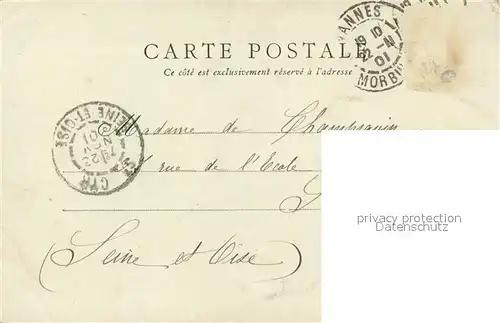 CARTE POSTALE
Ce côté est exclusivement réservé à l'adresse
VANNES
MORBI
19 10
22 -11
01
SEINE-ET-OISE
ST CYR
23
NOV
01
Madame de
rue de l'Ecole
S
(Seine et Oise)
privacy protection
Datenschutz